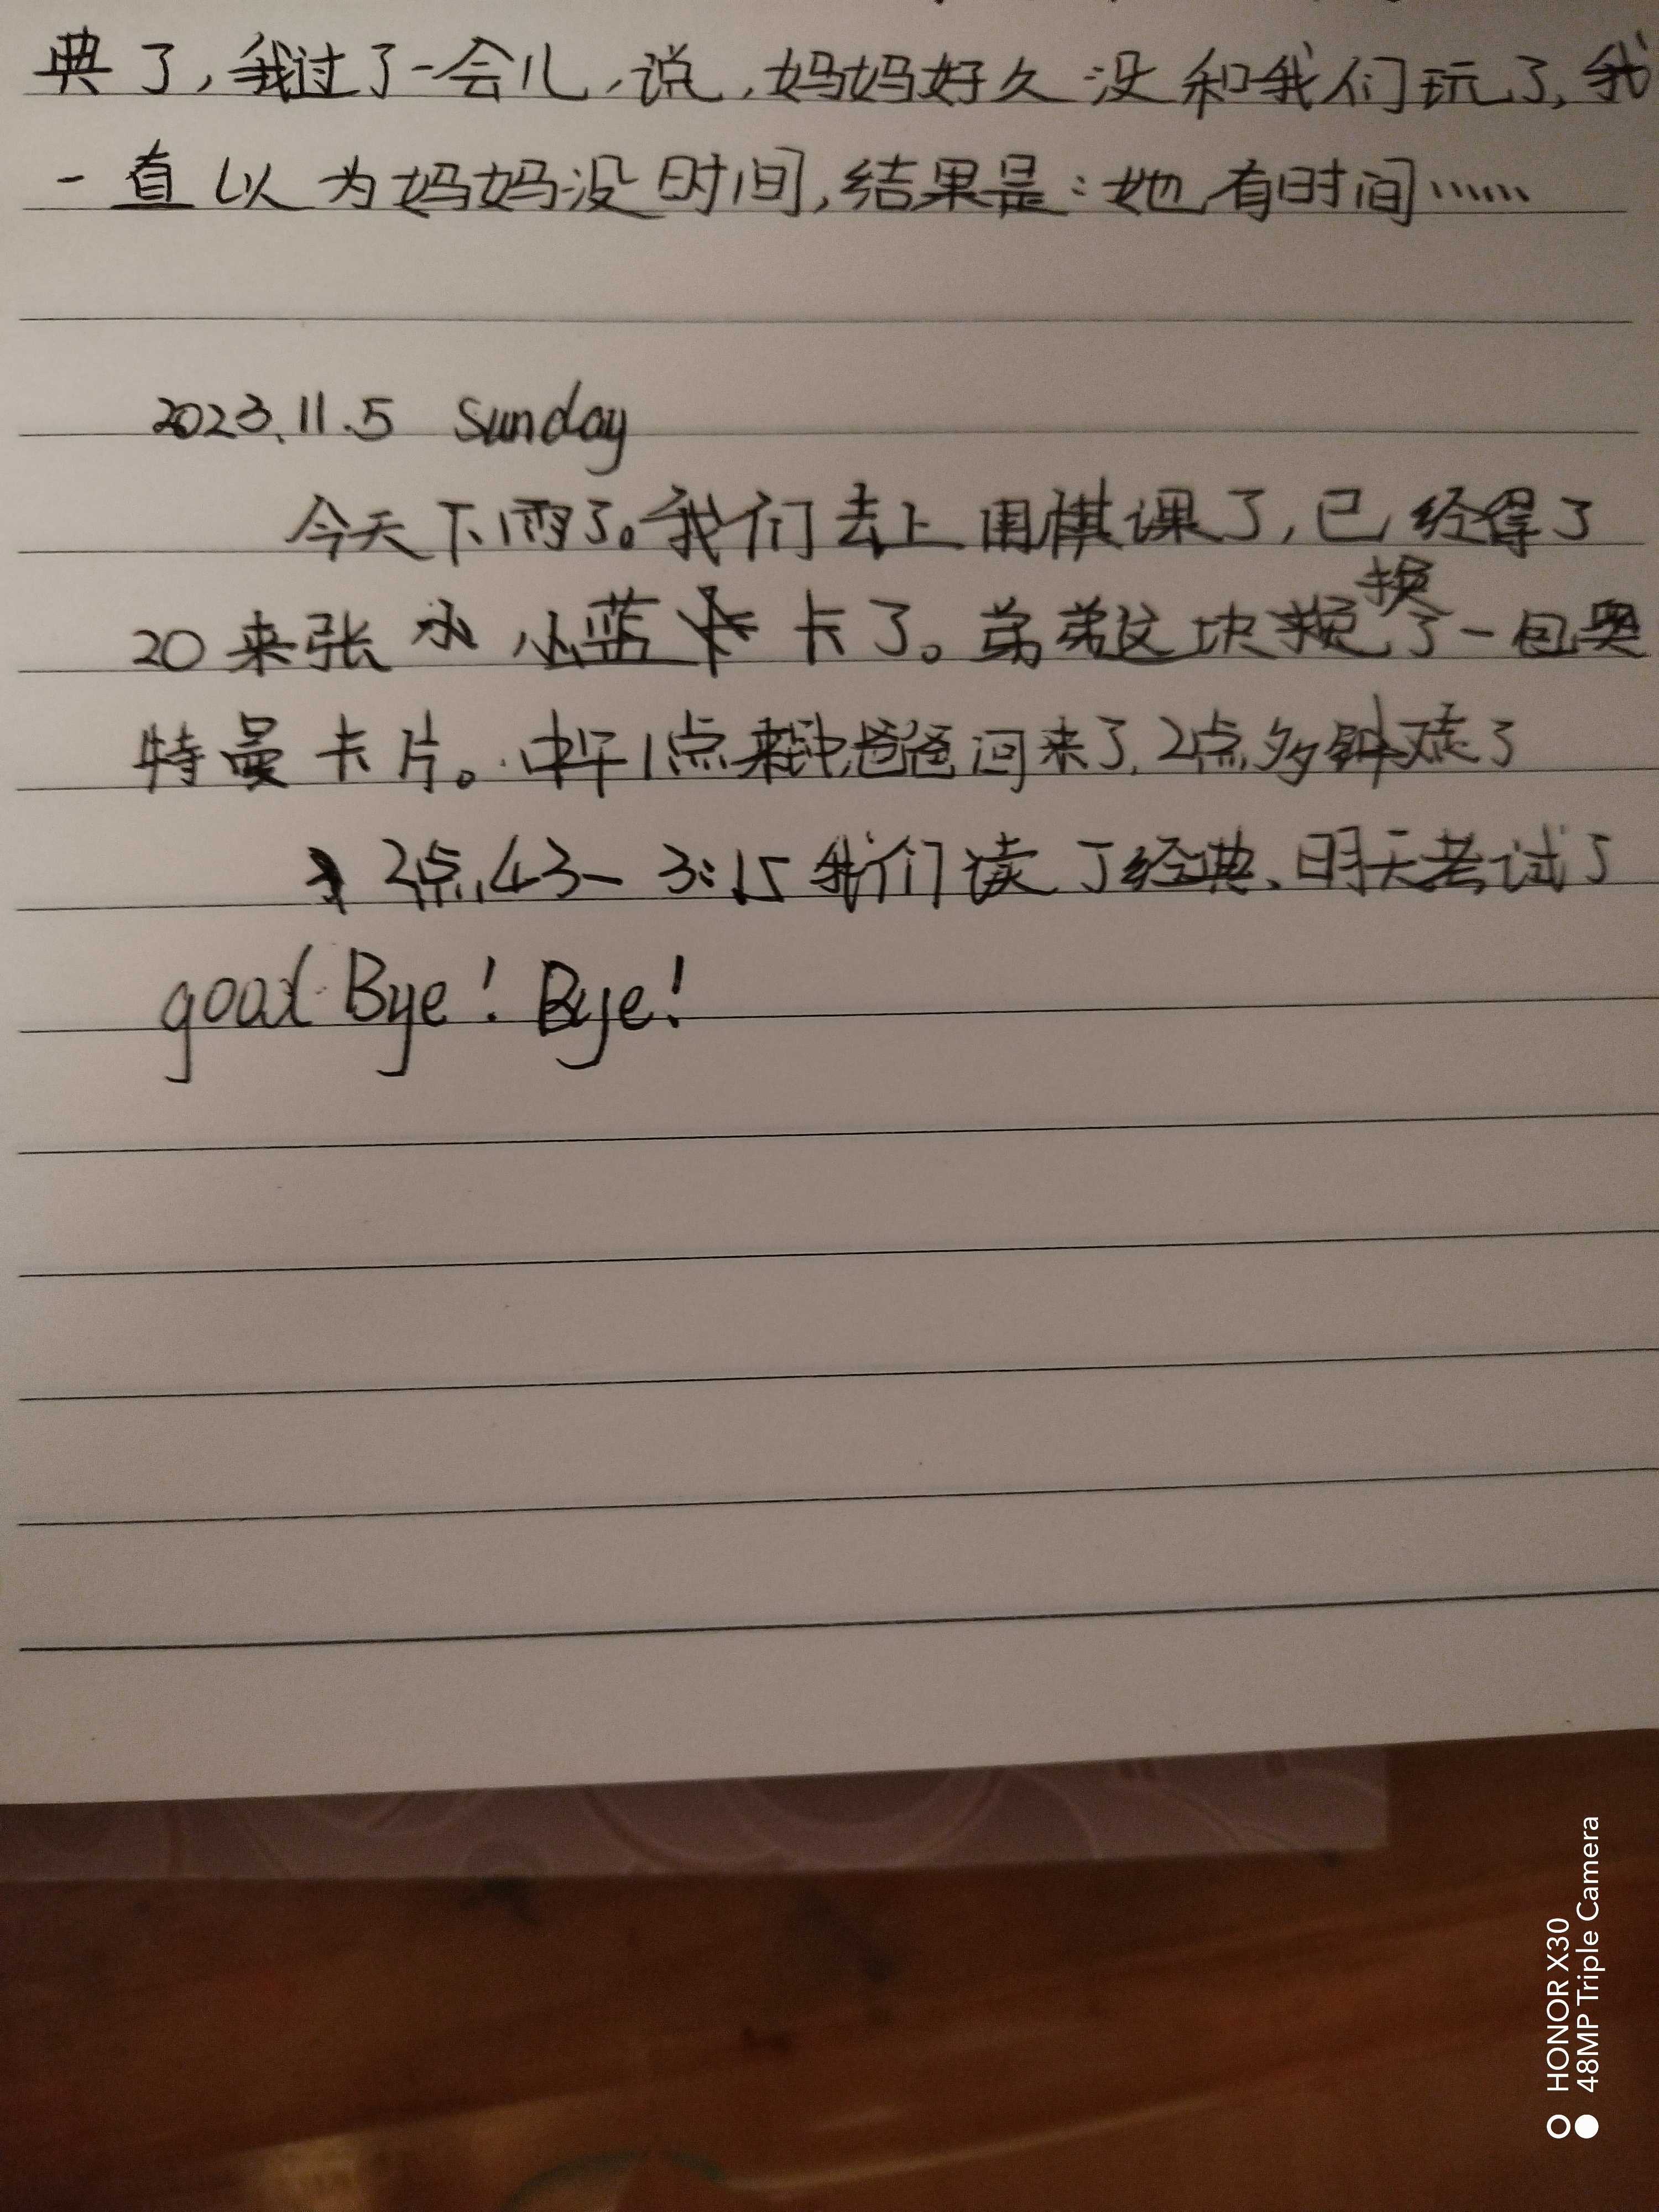 典了,我过了一会儿,说,妈妈好久没和我们玩了,我
一直以为妈妈没时间,结果是:她有时间……
2023.11.5 Sunday
今天下雨了。我们去上围棋课了,已经得了
20来张小蓝卡了。弟弟这块换了一包奥
特曼卡片。中午1点来钟爸爸回来了,2点多钟走了
2点43-3:15我们读了经典、明天考试了
good Bye! Bye!
HONOR X30
48MP Triple Camera